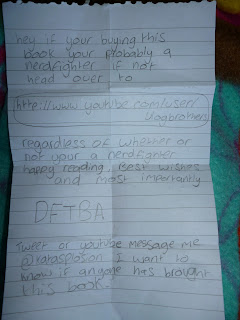 hey if your buying this
book your probably a
nerdfighter if not
head over to
http://www.youtube.com/user/
vlogbrothers
regardless of whether or
not your a nerdfighter
happy reading, Best wishes
and most importantly
DFTBA
Tweet or youtube message me
I want to
know if anyone has brought
this book.